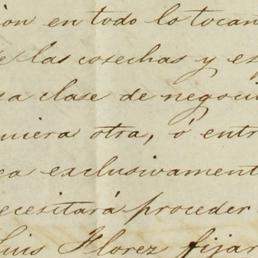 ion en todo lo tocan
e las cosechas y es
sa clase de negocio
quiera otra, ó entr
ca exclusivament
ecesitará proceder
Luis Florez fijar